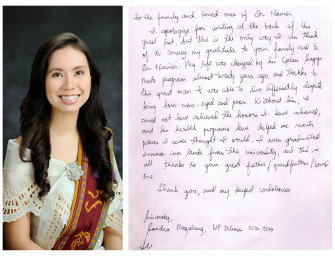 To the family and loved ones of Dr. Flavier,
I apologize for writing at the back of this
guest list, but this is the only way I can think
of to convey my gratitude to your family and to
Dr. Flavier. My life was changed by his Oplan
program almost twenty years ago, and thanks to
this great man I was able to live differently despite
being born cross-eyed and poor. Without him, I
could not have achieved the honors I have achieved,
and his health programs have helped me reach
places I never thought I would. I even graduated
summa cum laude from this university, and this is
all thanks to your great father / grandfather / loved
one.
Thank you, and my deepest condolences.
Sincerely,
Sandra Magalang, UP Diliman